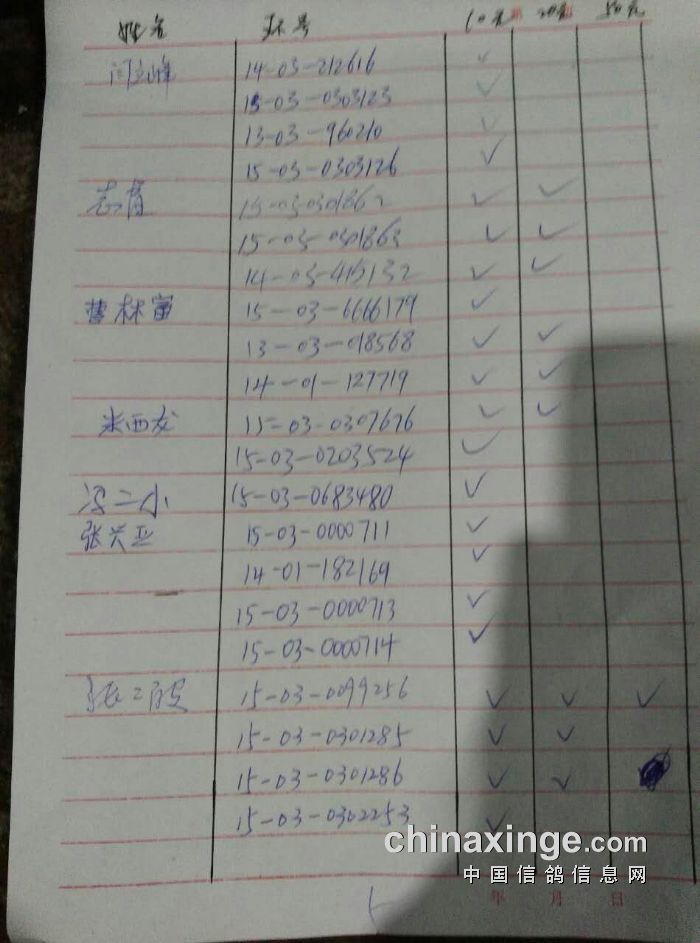 姓名 环号 10元 20元 50元
闫立峰 14-03-212616 ✓
15-03-0303123 ✓
13-03-960210 ✓
15-03-0303126 ✓
15-03-0301862 ✓ ✓
15-03-0301863 ✓ ✓
14-03-415132 ✓ ✓
曹林富 15-03-6666179 ✓
13-03-018568 ✓ ✓
14-01-127719 ✓ ✓
米西龙 15-03-0307676 ✓ ✓
15-03-0203524 ✓
冯二小 15-03-0683480 ✓
张兴亚 15-03-0000711 ✓
14-01-182169 ✓
15-03-0000713 ✓
15-03-0000714 ✓
张二俊 15-03-0099256 ✓ ✓ ✓
15-03-0301285 ✓ ✓
15-03-0301286 ✓ ✓
15-03-0302253 ✓
chinaxinge.com
中国信鸽信息网
年 月 日